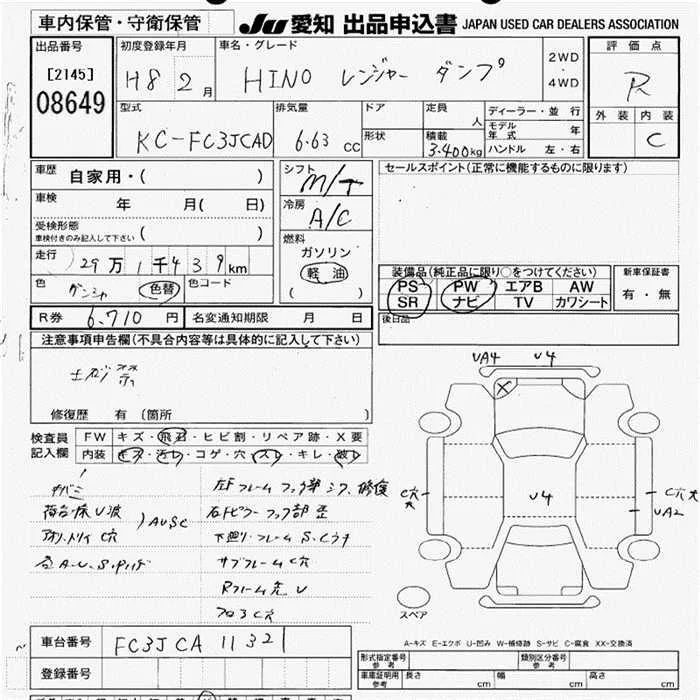 車内保管・守衛保管 JU 愛知 出品申込書 JAPAN USED CAR DEALERS ASSOCIATION
出品番号
[2145]
08649
初度登録年月
H8 2 月
車名・グレード
HINO レンジャー ダンプ
2WD
・
4WD
評価点
R
外装 内装
C
型式
KC-FC3JCAD
排気量
6.63 cc
ドア
形状
定員
人
積載
3.400kg
ディーラー・並行
モデル年式 年
ハンドル 左・右
車歴
自家用・( )
車検 年 月( 日)
受検形態
車検付きのみ記入して下さい ( )
走行
29万1千439km
色 色替 色コード
シフト
M/T
冷房
A/C
燃料
ガソリン
軽油
( )
セールスポイント(正常に機能するものに限ります)
装備品(純正品に限り○をつけてください)
PS PW エアB AW
SR ナビ TV カワシート
新車保証書
有・無
後日品
R券 6,710 円 名変通知期限 月 日
注意事項申告欄(不具合内容等は具体的に記入して下さい)
修復歴 有 (箇所 )
検査員
記入欄
FW キズ・飛石・ヒビ割・リペア跡・X要
内装 キズ・汚レ・コゲ・穴・スレ・キレ・破レ
荷台・床U波
AUSC
左Fフレームフック部シワ、修復
右Fピラーフック部歪
下廻り・フレームS.Cウチ
サブフレームC穴
Rフレーム先U
フロアC穴
UA4 U4
X
C穴大
U4
C穴大
UA2
スペア
A-キズ E-エクボ U-凹み W-補修跡 S-サビ C-腐食 XX-交換済
車台番号 FC3JCA 11321
登録番号
形式指定番号
参考
類別区分番号
参考
車庫証明用
参考
長さ cm 幅 cm 高さ cm